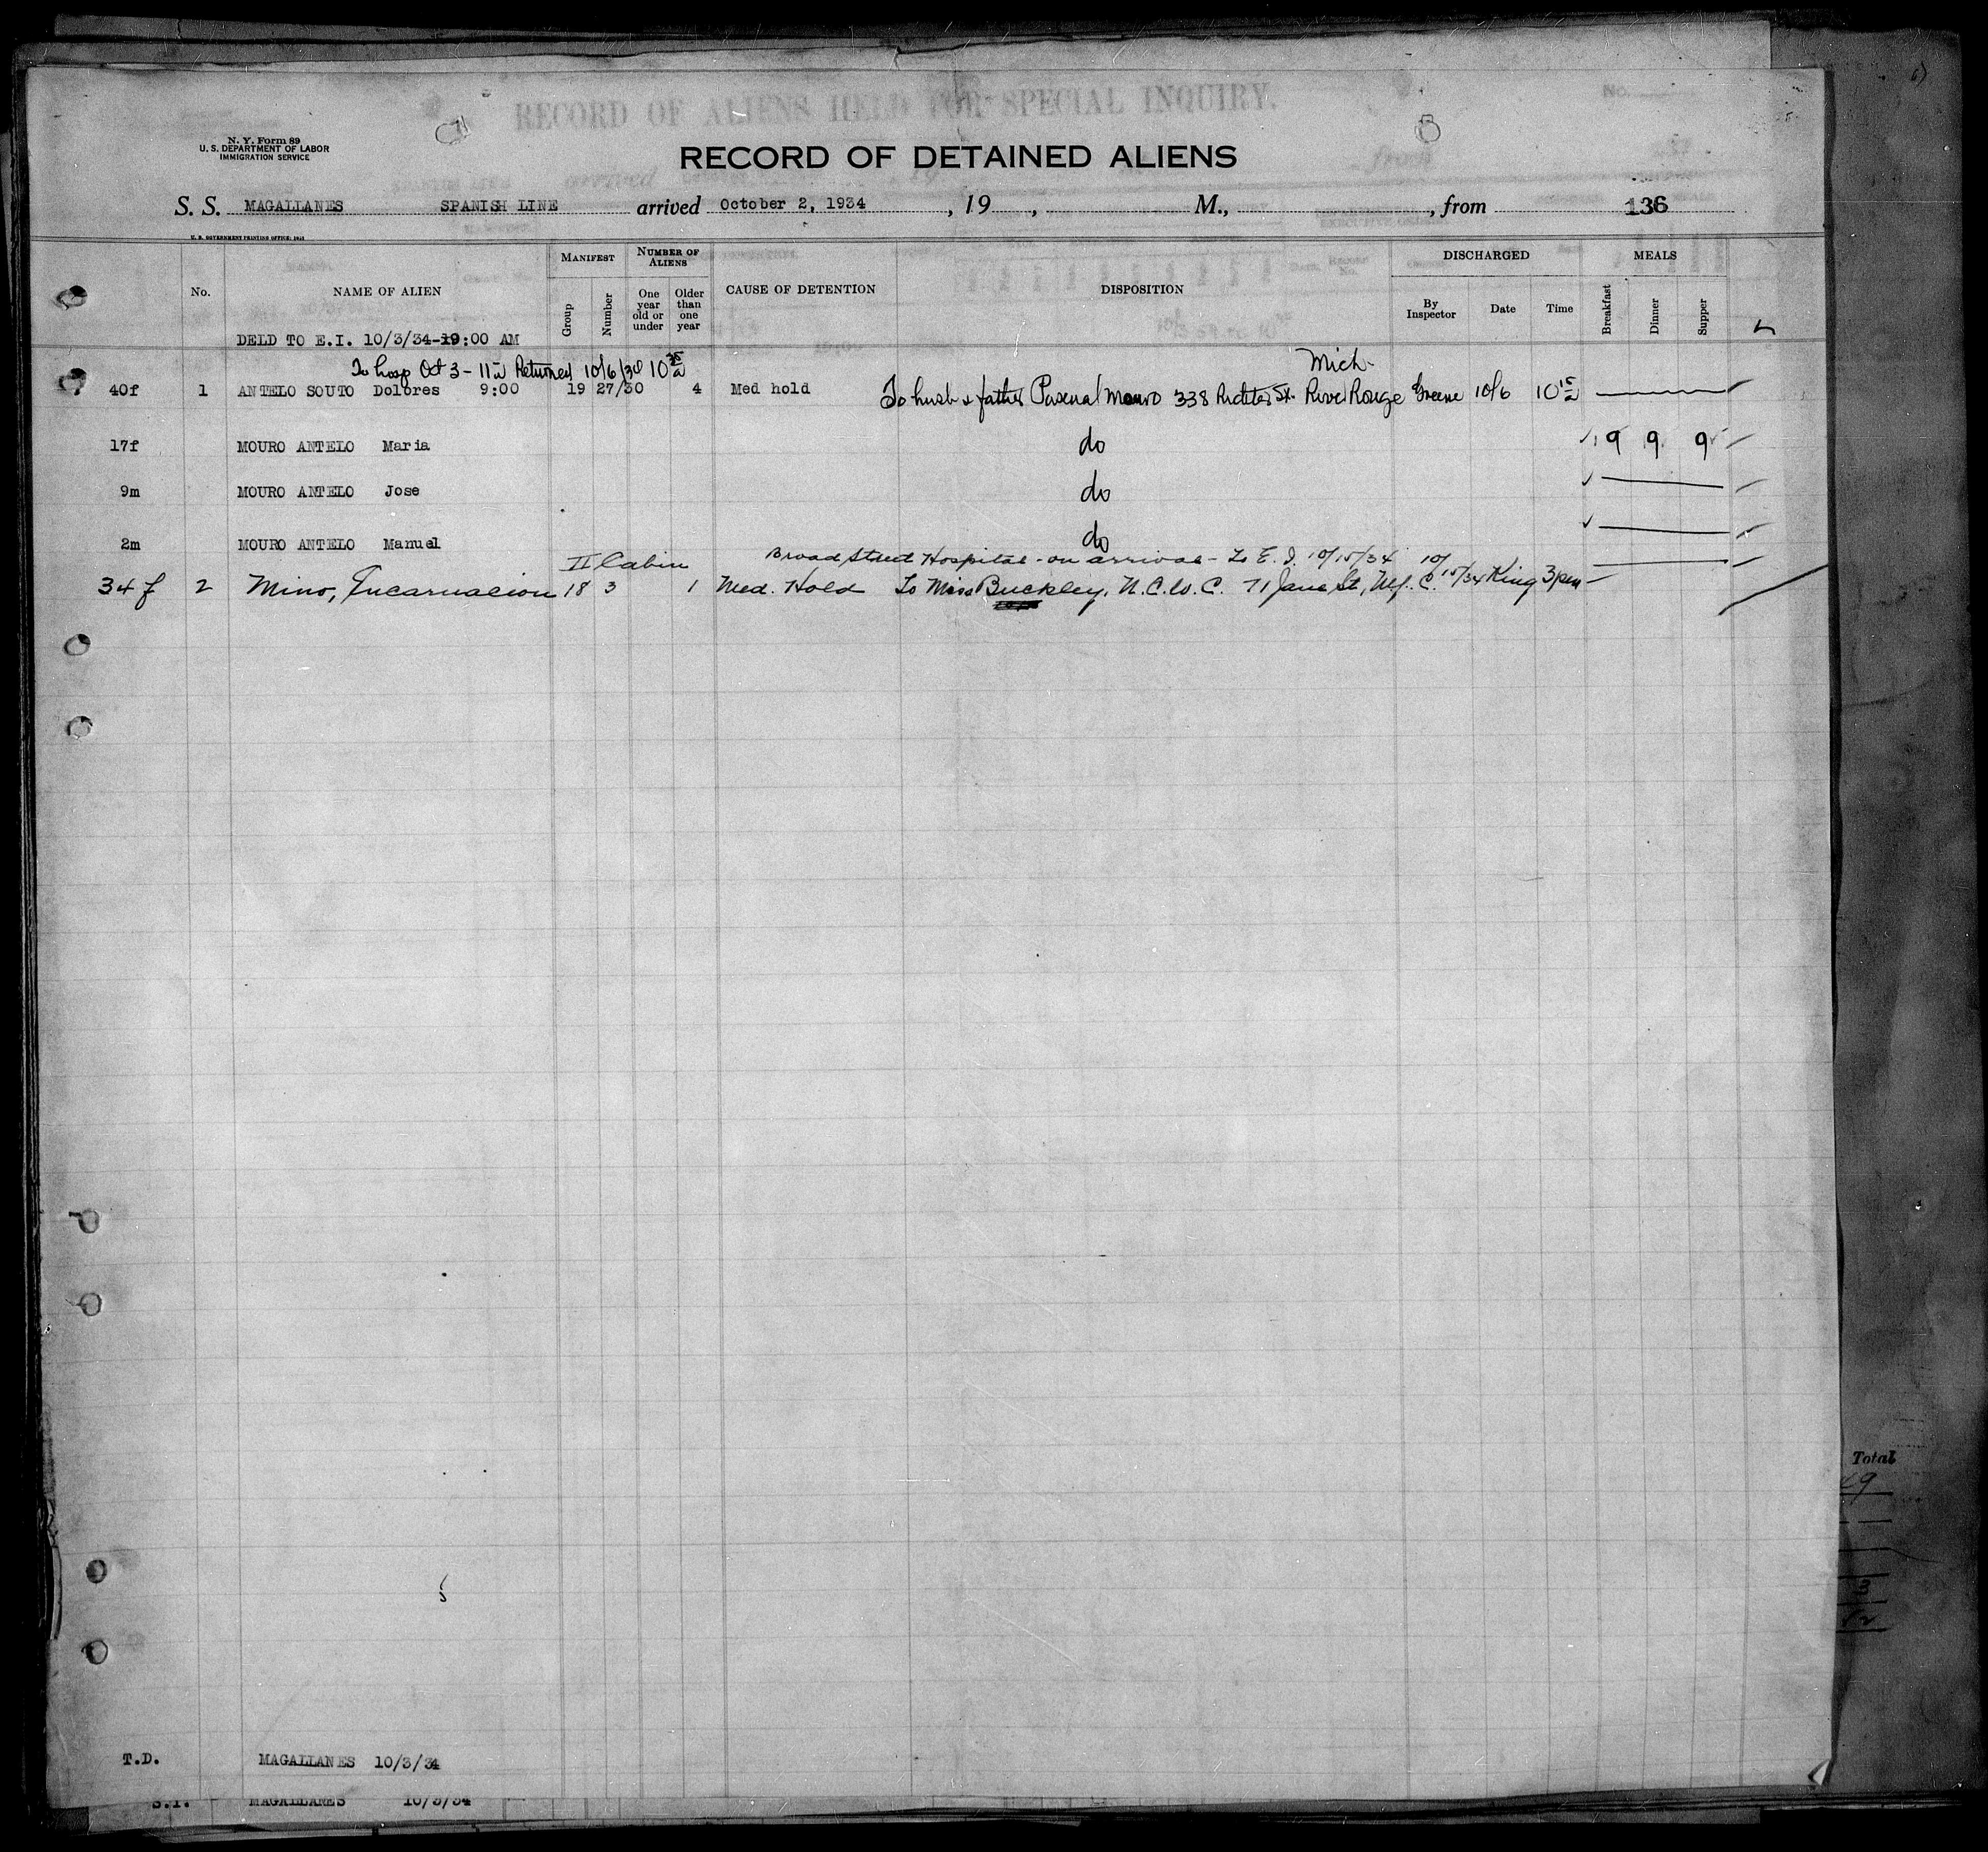 RECORD OF ALIENS HELD FOR SPECIAL INQUIRY.
No.
N. Y. Form 89
U. S. DEPARTMENT OF LABOR
IMMIGRATION SERVICE
RECORD OF DETAINED ALIENS
S. S. MAGALLANES SPANISH LINE arrived October 2, 1934, 19 , M., , from 136
U. S. GOVERNMENT PRINTING OFFICE:
No. NAME OF ALIEN MANIFEST Group Number NUMBER OF ALIENS One year old or under Older than one year CAUSE OF DETENTION DISPOSITION DISCHARGED By Inspector Date Time MEALS Breakfast Dinner Supper
DELD TO E.I. 10/3/34-19:00 AM
To hosp Oct 3 - 11 Returned 10/6/34 10 Mich.
40f 1 ANTELO SOUTO Dolores 9:00 19 27/30 4 Med hold To husb & father Mouro 338 St. River Rouge Greene 10/6 10 15
17f MOURO ANTELO Maria do 9 9 9
9m MOURO ANTELO Jose do
2m MOURO ANTELO Manuel do
II Cabin Broad Street Hospital - on arrival - To E. I. 10/15/34
34 f 2 Mino, Encarnacion 18 3 1 Med. Hold To Miss Buckley, N.C.W.C. 71 Jane St, N.Y.C. 10/15/34 King 3 pm
Total
T.D. MAGALLANES 10/3/34
S.I. MAGALLANES 10/3/34